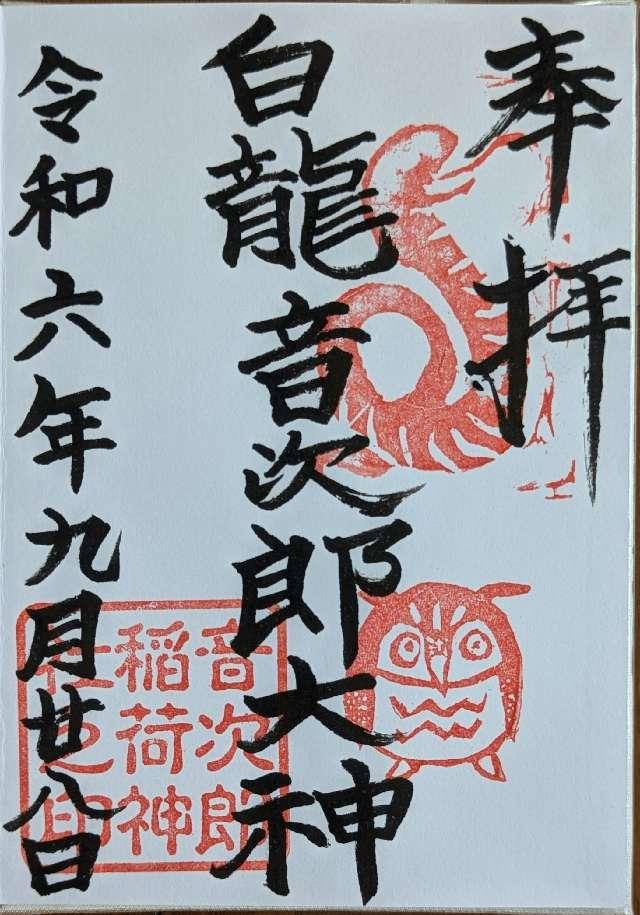 奉拝
白龍音次郎大神
音次郎
稲荷神
社之印
令和六年九月廿八日